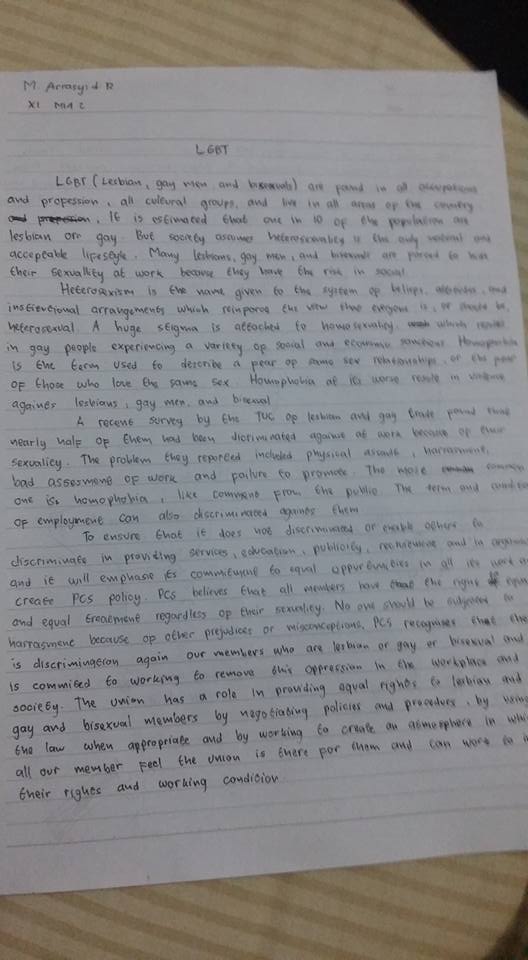 M. Arrasyid R
XI MIA 2
LGBT
LGBT (Lesbian, gay men, and bisexuals) are found in all occupations
and profession, all cultural groups, and live in all areas of the country
It is estimated that one in 10 of the population are
lesbian or gay. But society assumes heterosexuality is the only natural and
acceptable lifestyle. Many lesbians, gay men, and bisexual are forced to hide
their sexuality at work because they have the risk in social
Heterosexism is the name given to the system of beliefs, attitudes, and
institutional arrangements which reinforce the view that everyone is, or should be,
heterosexual. A huge stigma is attached to homosexuality, which results
in gay people experiencing a variety of social and economic sanctions. Homophobia
is the term used to describe a fear of same sex relationships, or the fear
of those who love the same sex. Homophobia at its worse result in violence
againts lesbians, gay men, and bisexual
A recent survey by the TUC of lesbian and gay trade found that
nearly half of them had been discriminated against at work because of their
sexuality. The problem they reported included physical assault, harrasment,
bad assesment of work and failure to promote. The more common
one is homophobia, like comment from the public. The term and condition
of employment can also discriminated againts them
To ensure that it does not discriminated or enable others to
discriminate in providing services, education, publicity, recruitment and in
and it will emphasis its commitment to equal oppurtunities in all its work
create PCS policy. PCS believes that all members have the right equal
and equal treatment regardless of their sexuality. No one should be subjected to
harrasment because of other prejudices or misconceptions, PCS recognises that the
is discrimination again our members who are lesbian or gay or bisexual and
is commited to working to remove this oppression in the workplace and
society. The union has a role in providing equal rights to lesbian and
gay and bisexual members by negotiating policies and procedure, by using
the law when appropriate and by working to create an atmosphere in
all our member feel the union is there for them and can work to
their rights and working condition.